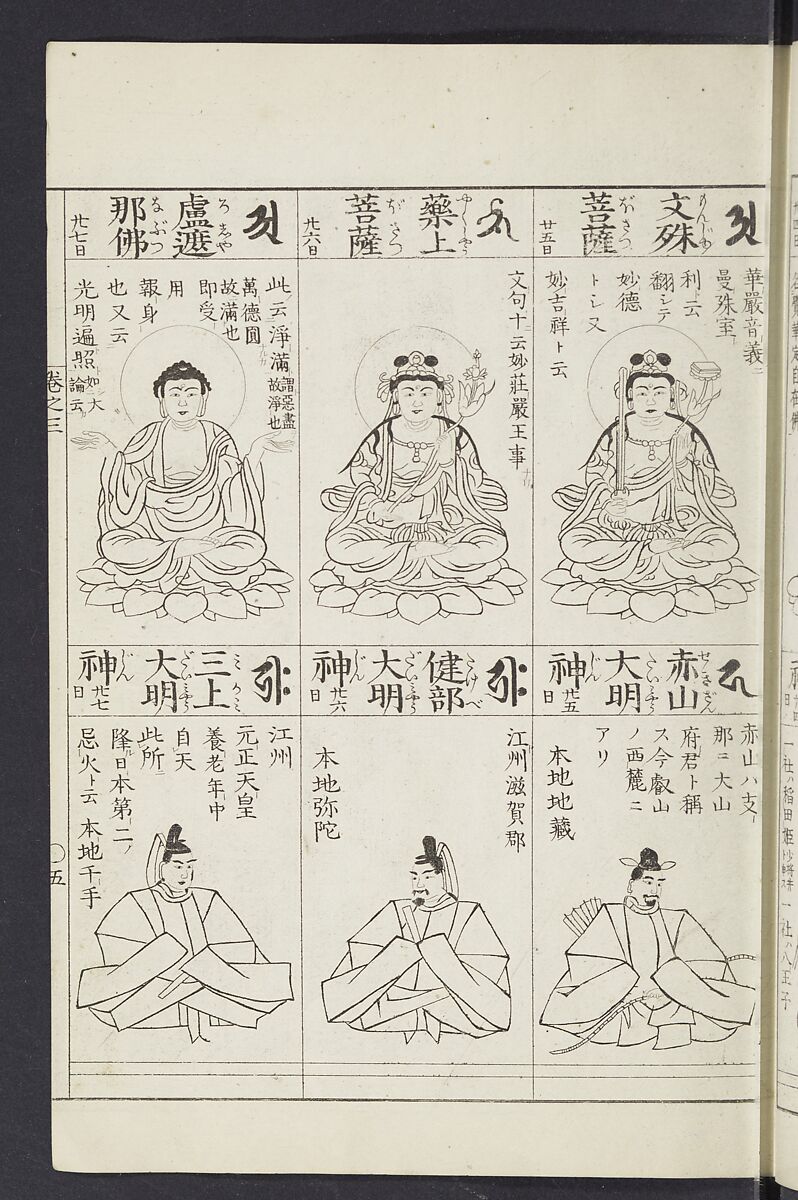 文殊
もんじゆ
菩薩
ぼさつ
廿五日
華嚴音義ニ
曼殊室
利ト云
翻シテ
妙德
トシ又
妙吉祥ト云
藥上
菩薩
ぼさつ
廿六日
文句十ニ云妙莊嚴王事
盧遮
ろしや
那佛
なぶつ
廿七日
此ニ云淨滿
謂惡盡
故淨也
萬德圓
故滿也
即受
用
報身
也又云
光明遍照
如大
論云
赤山
せきざん
大明
神
じん
廿五
日
赤山ハ支
那ニ大山
府君ト稱
ス今叡山
ノ西麓ニ
アリ
本地地藏
健部
たけべ
大明
神
じん
廿六
日
江州滋賀郡
本地弥陀
三上
みかみ
大明
神
じん
廿七
日
江州
元正天皇
養老年中
自天
此所ニ
隆日本第二ノ
忌火ト云
本地千手
卷之三
〇五